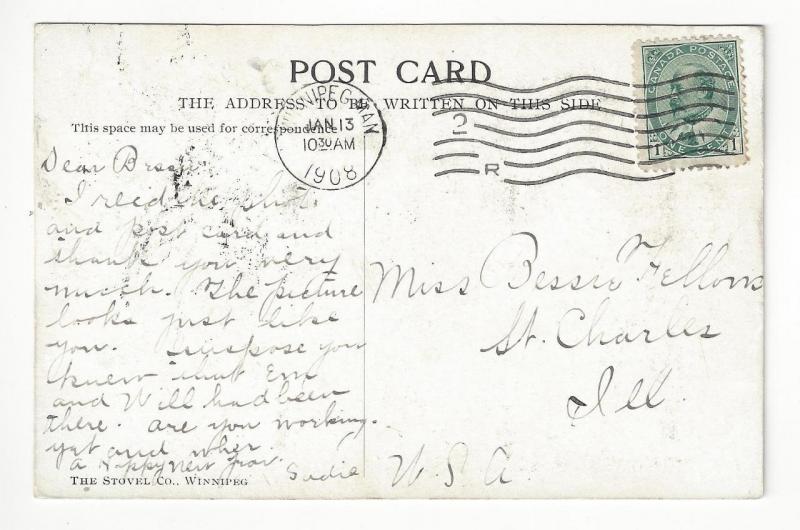 POST CARD
THE ADDRESS TO BE WRITTEN ON THIS SIDE
This space may be used for correspondence
WINNIPEG MAN
JAN 13
10 30 AM
1908
2
R
CANADA POSTAGE
ONE CENT
1 1
Dear Bessie
I recd the phot.
and post card and
thank you very
much. The picture
looks just like
you. suspose you
knew that Em
and Will had been
there. are you working
yat and wher
a Happy New year
Sadie
Miss Bessie Fellows
St. Charles
Ill.
U. S. A.
THE STOVEL CO., WINNIPEG